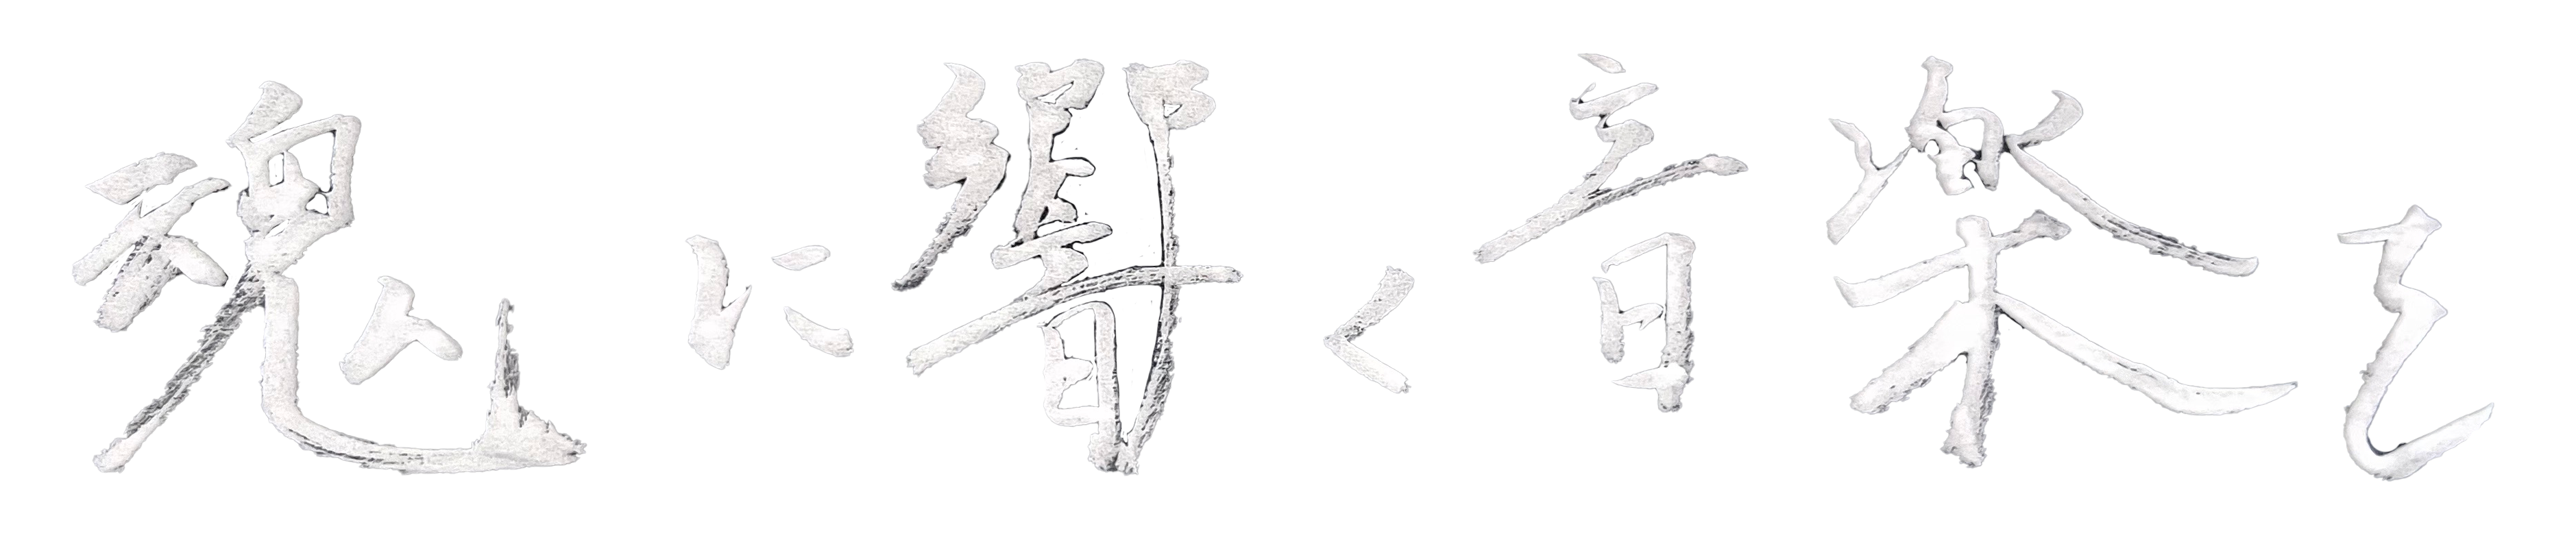 魂に響く音楽を